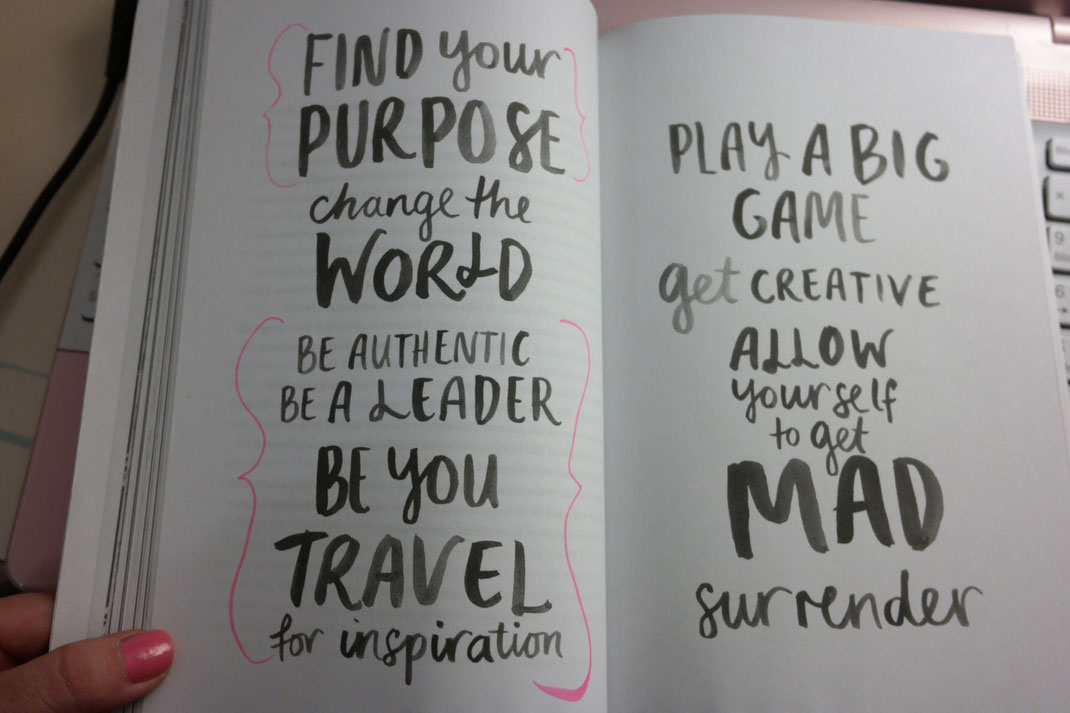 FIND your
PURPOSE
change the
WORLD
BE AUTHENTIC
BE A LEADER
BE YOU
TRAVEL
for inspiration
PLAY A BIG
GAME
get CREATIVE
ALLOW
yourself
to get
MAD
surrender
9
6